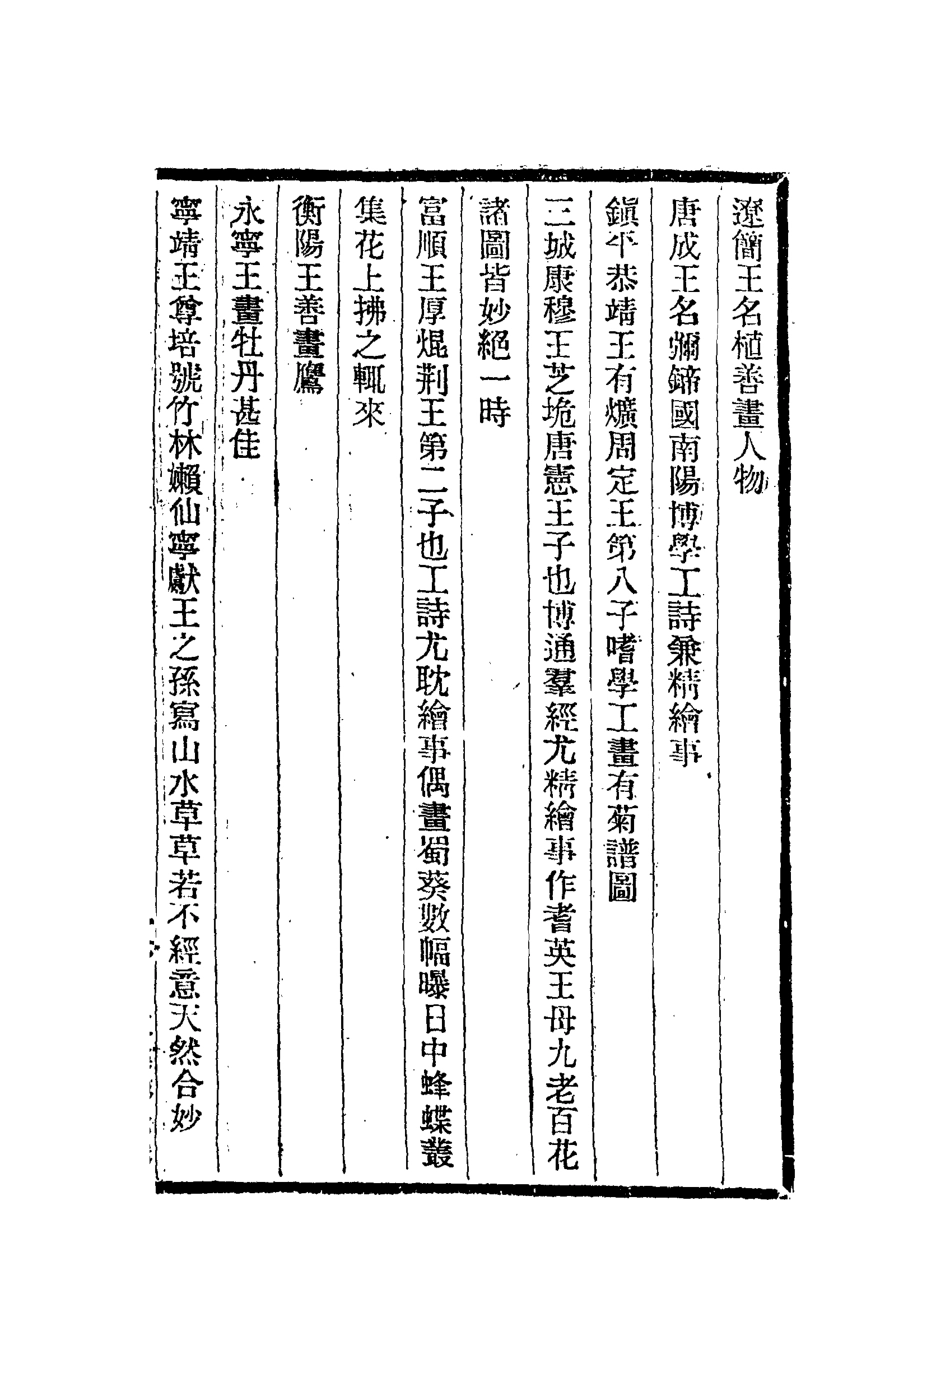 遼簡王名植善畫人物
唐成王名彌鍗國南陽博學工詩兼精繪事
鎭平恭靖王有爌周定王第八子嗜學工畫有菊譜圖
三城康穆王芝垝唐憲王子也博通羣經尤精繪事作耆英王母九老百花
諸圖皆妙絕一時
富順王厚焜荆王第二子也工詩尤耽繪事偶畫蜀葵數幅曝日中蜂蝶叢
集花上拂之輒來
衡陽王善畫鷹
永寧王畫牡丹甚佳
寧靖王尊培號竹林嬾仙寧獻王之孫寫山水草草若不經意天然合妙